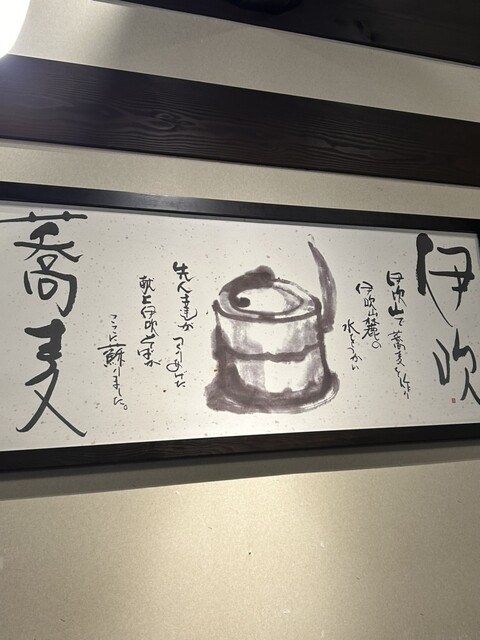 伊吹
伊吹山で蕎麦を作り
伊吹山麓の
水をつかい
先人達がつくりあげた
献上伊吹そばが
ここに蘇りました。
蕎麦